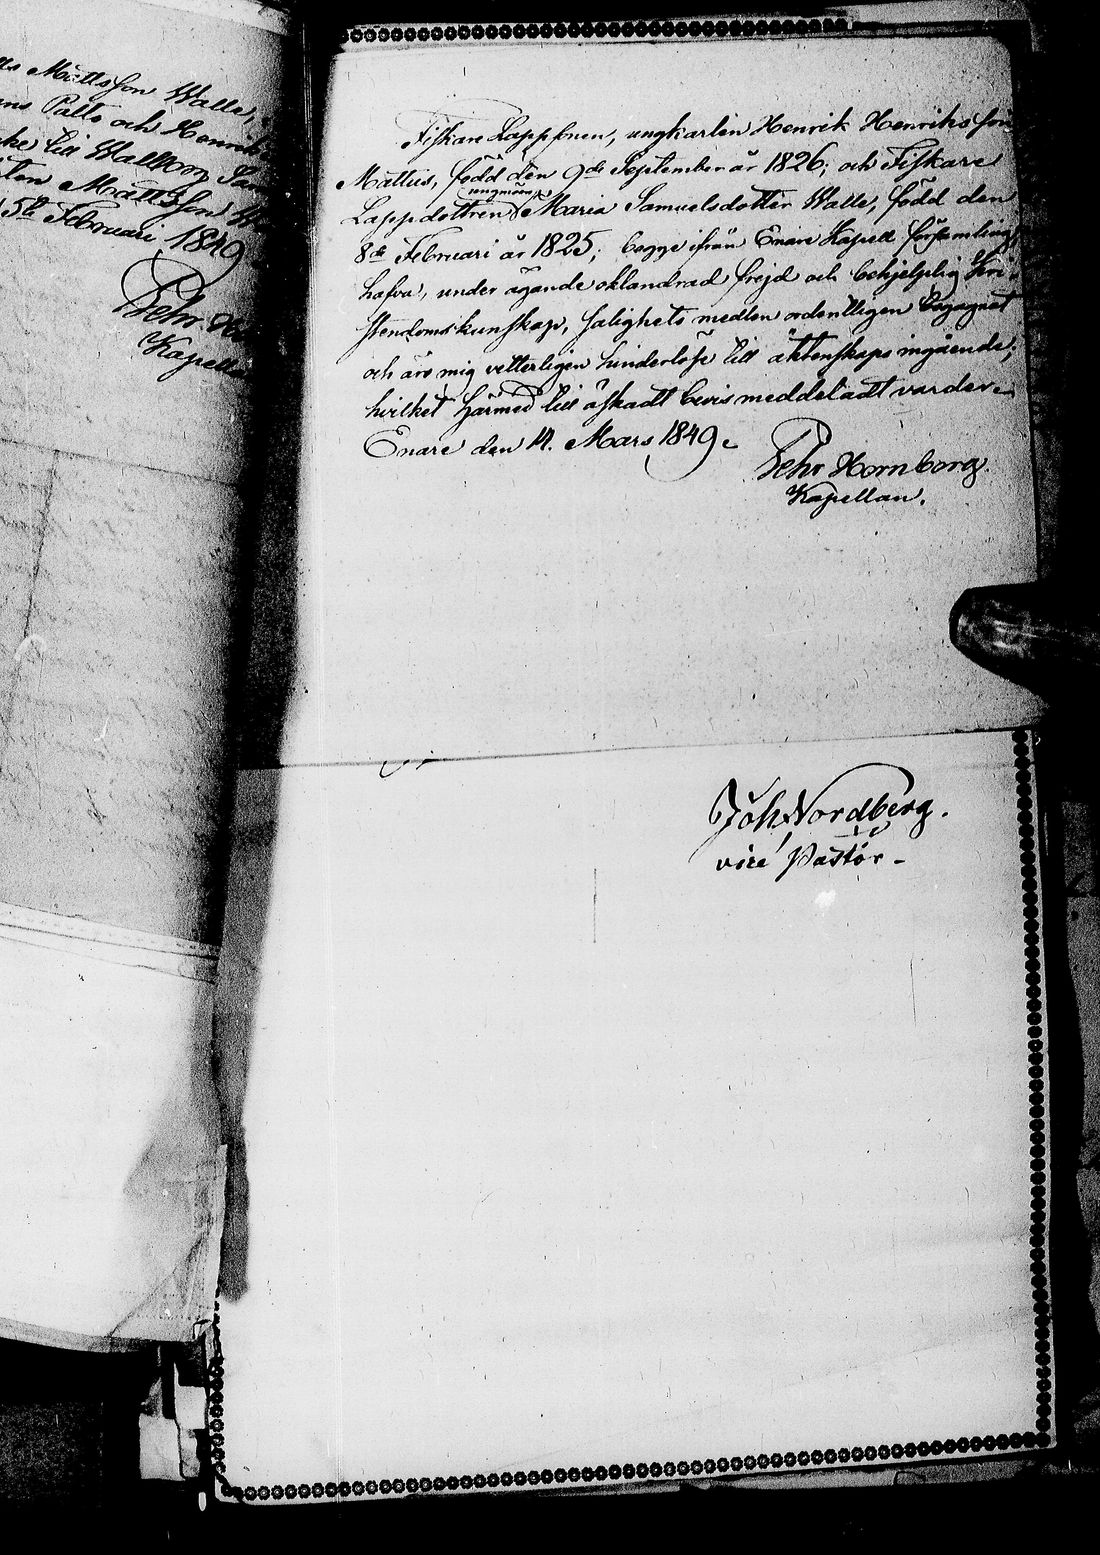 Mattsson Walle,
Palto och Henrik
till Wallborg Sam
Mattsson
5te Februari 1849
Pehr
Kapellan
Fiskare Lappsonen, ungkarlen Henrik Henriksson
Mattus, född den 9de September år 1826; och Fiskare
Lappdottren ungmön Maria Samuelsdotter Walle, född den
8de Februari år 1825; begge ifrån Enare Kapell församling,
hafva, under ägande oklandrad frejd och behjelplig Kri-
stendomskunskap, salighets medlen ordentligen begagnat
och äro mig vetterligen hinderlöse till äktenskaps ingående;
hvilket härmed till äskadt bevis meddeladt varder.
Enare den 14. Mars 1849.
Pehr Hornborg.
Kapellan.
Joh Nordberg.
vice Pastor